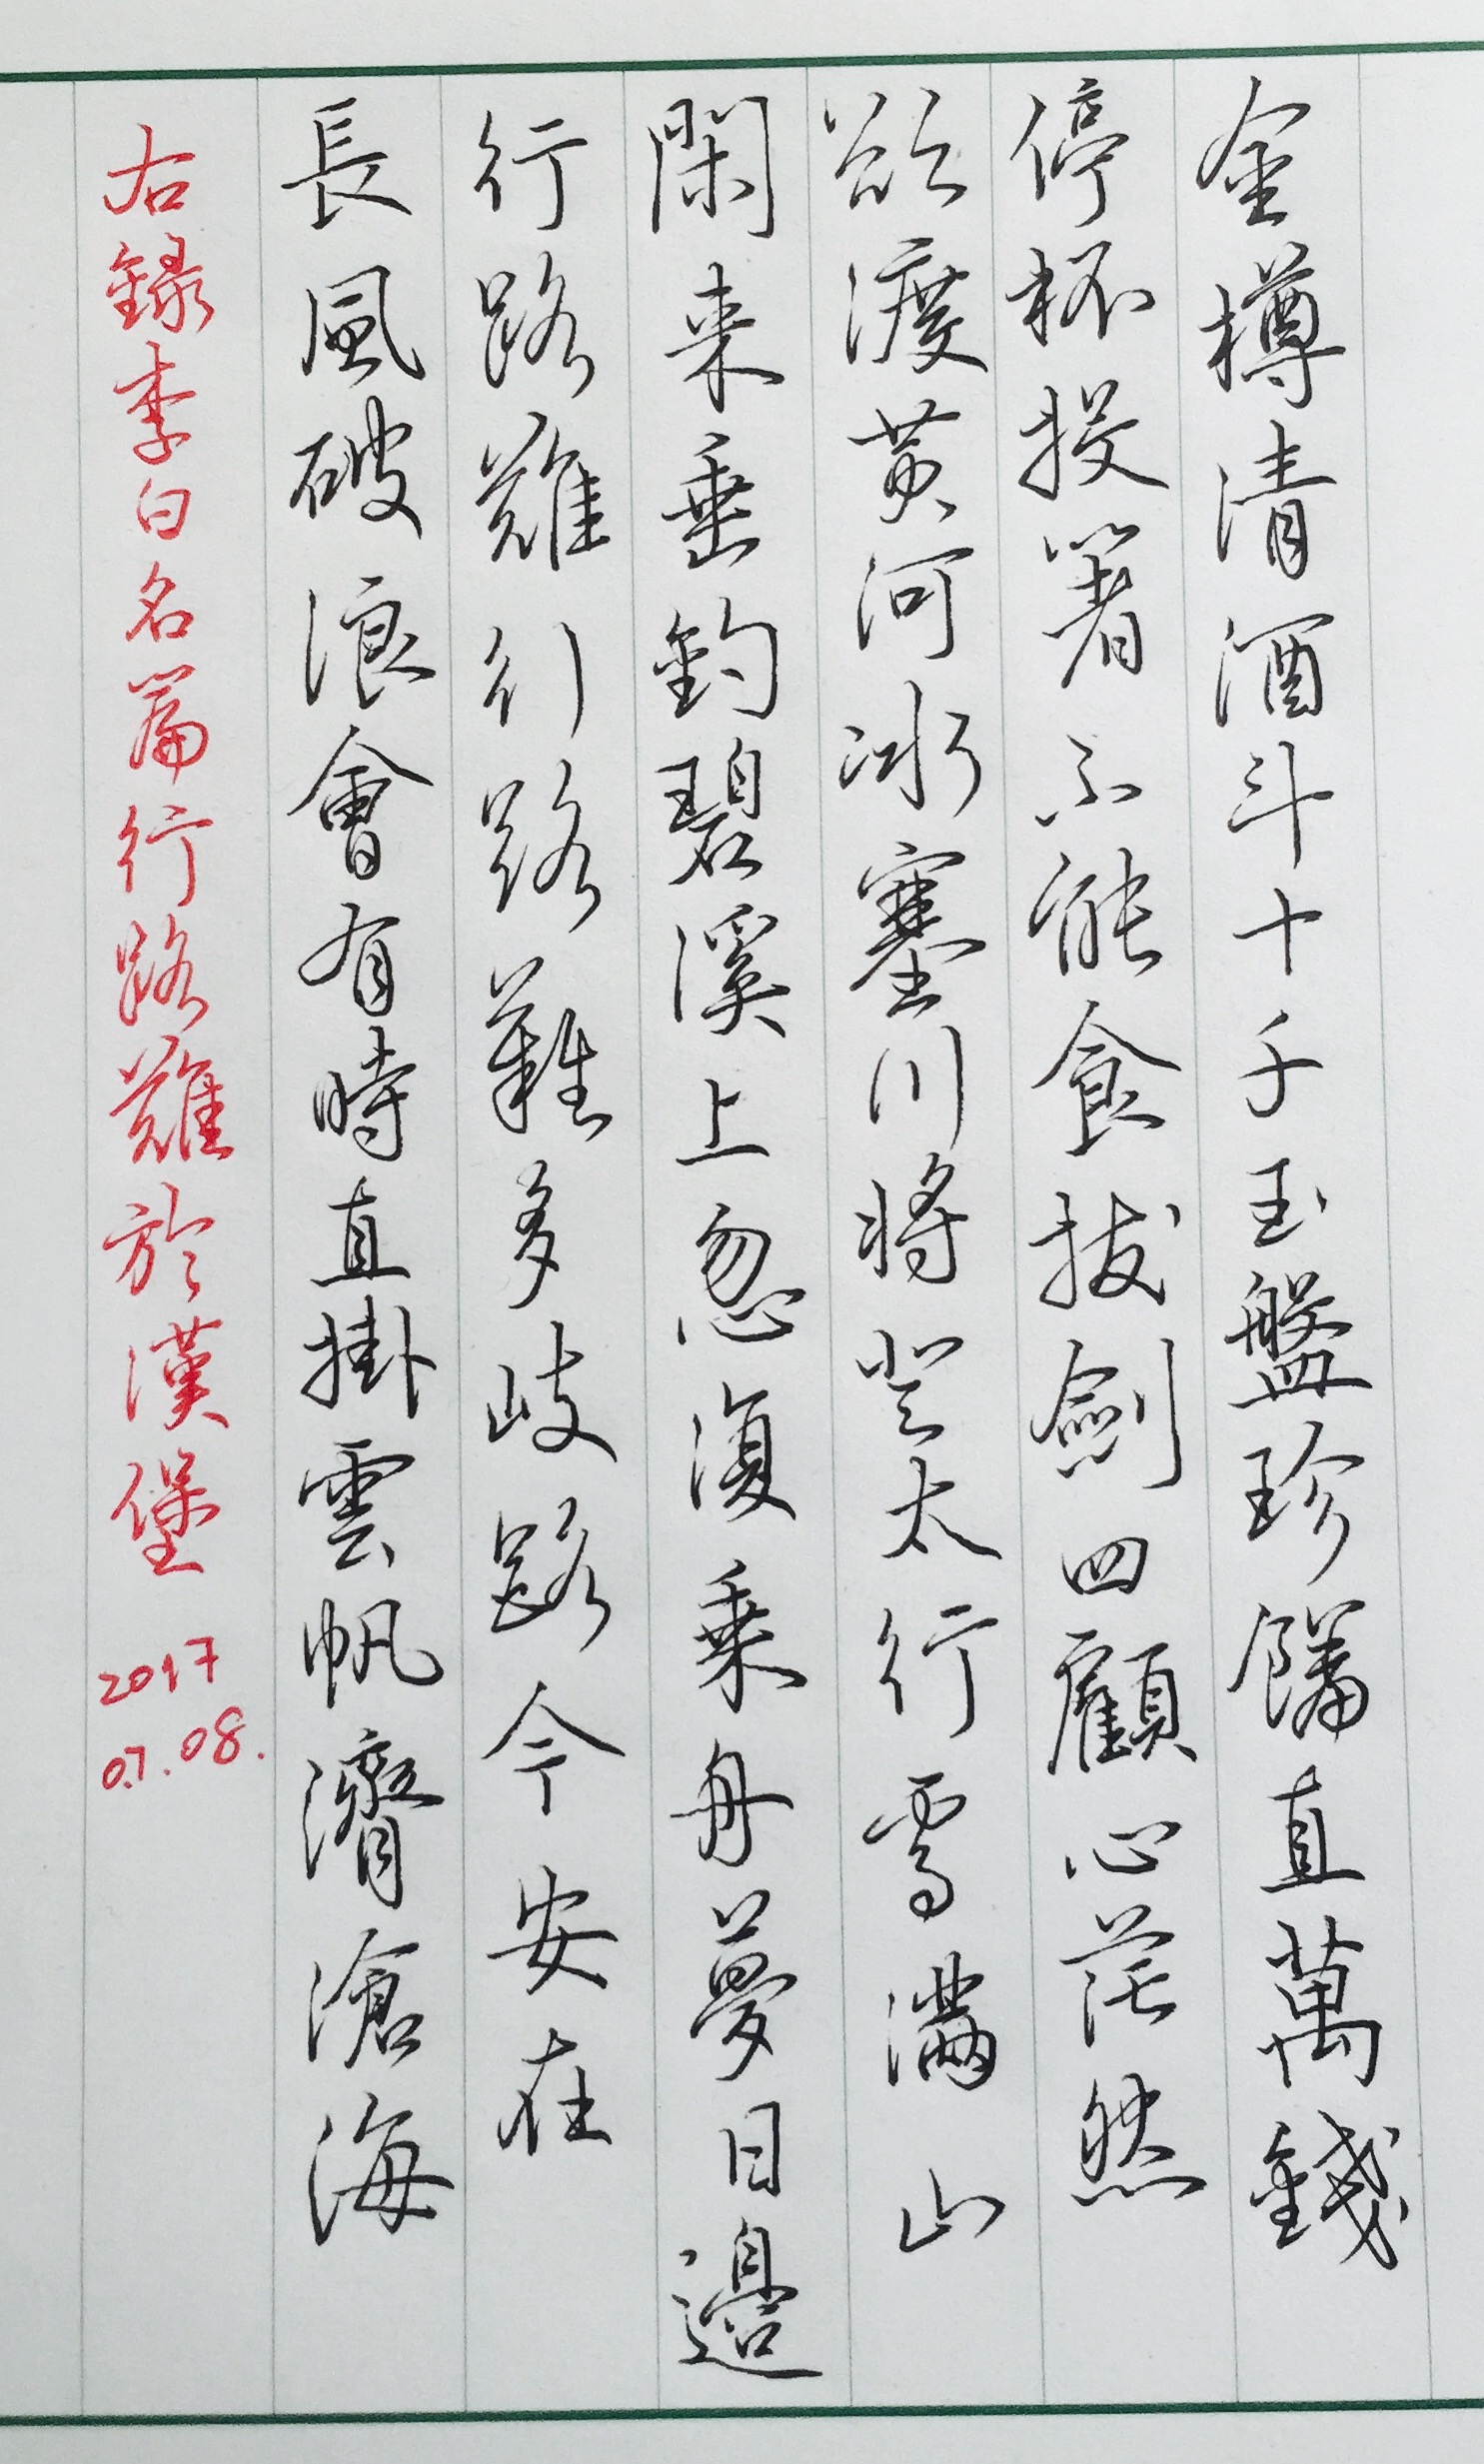 金樽清酒斗十千玉盤珍饈直萬錢
停杯投箸不能食拔劍四顧心茫然
欲渡黃河冰塞川將登太行雪滿山
閑來垂釣碧溪上忽復乘舟夢日邊
行路難行路難多岐路今安在
長風破浪會有時直掛雲帆濟滄海
右錄李白名篇行路難於漢堡
2017
07.08.